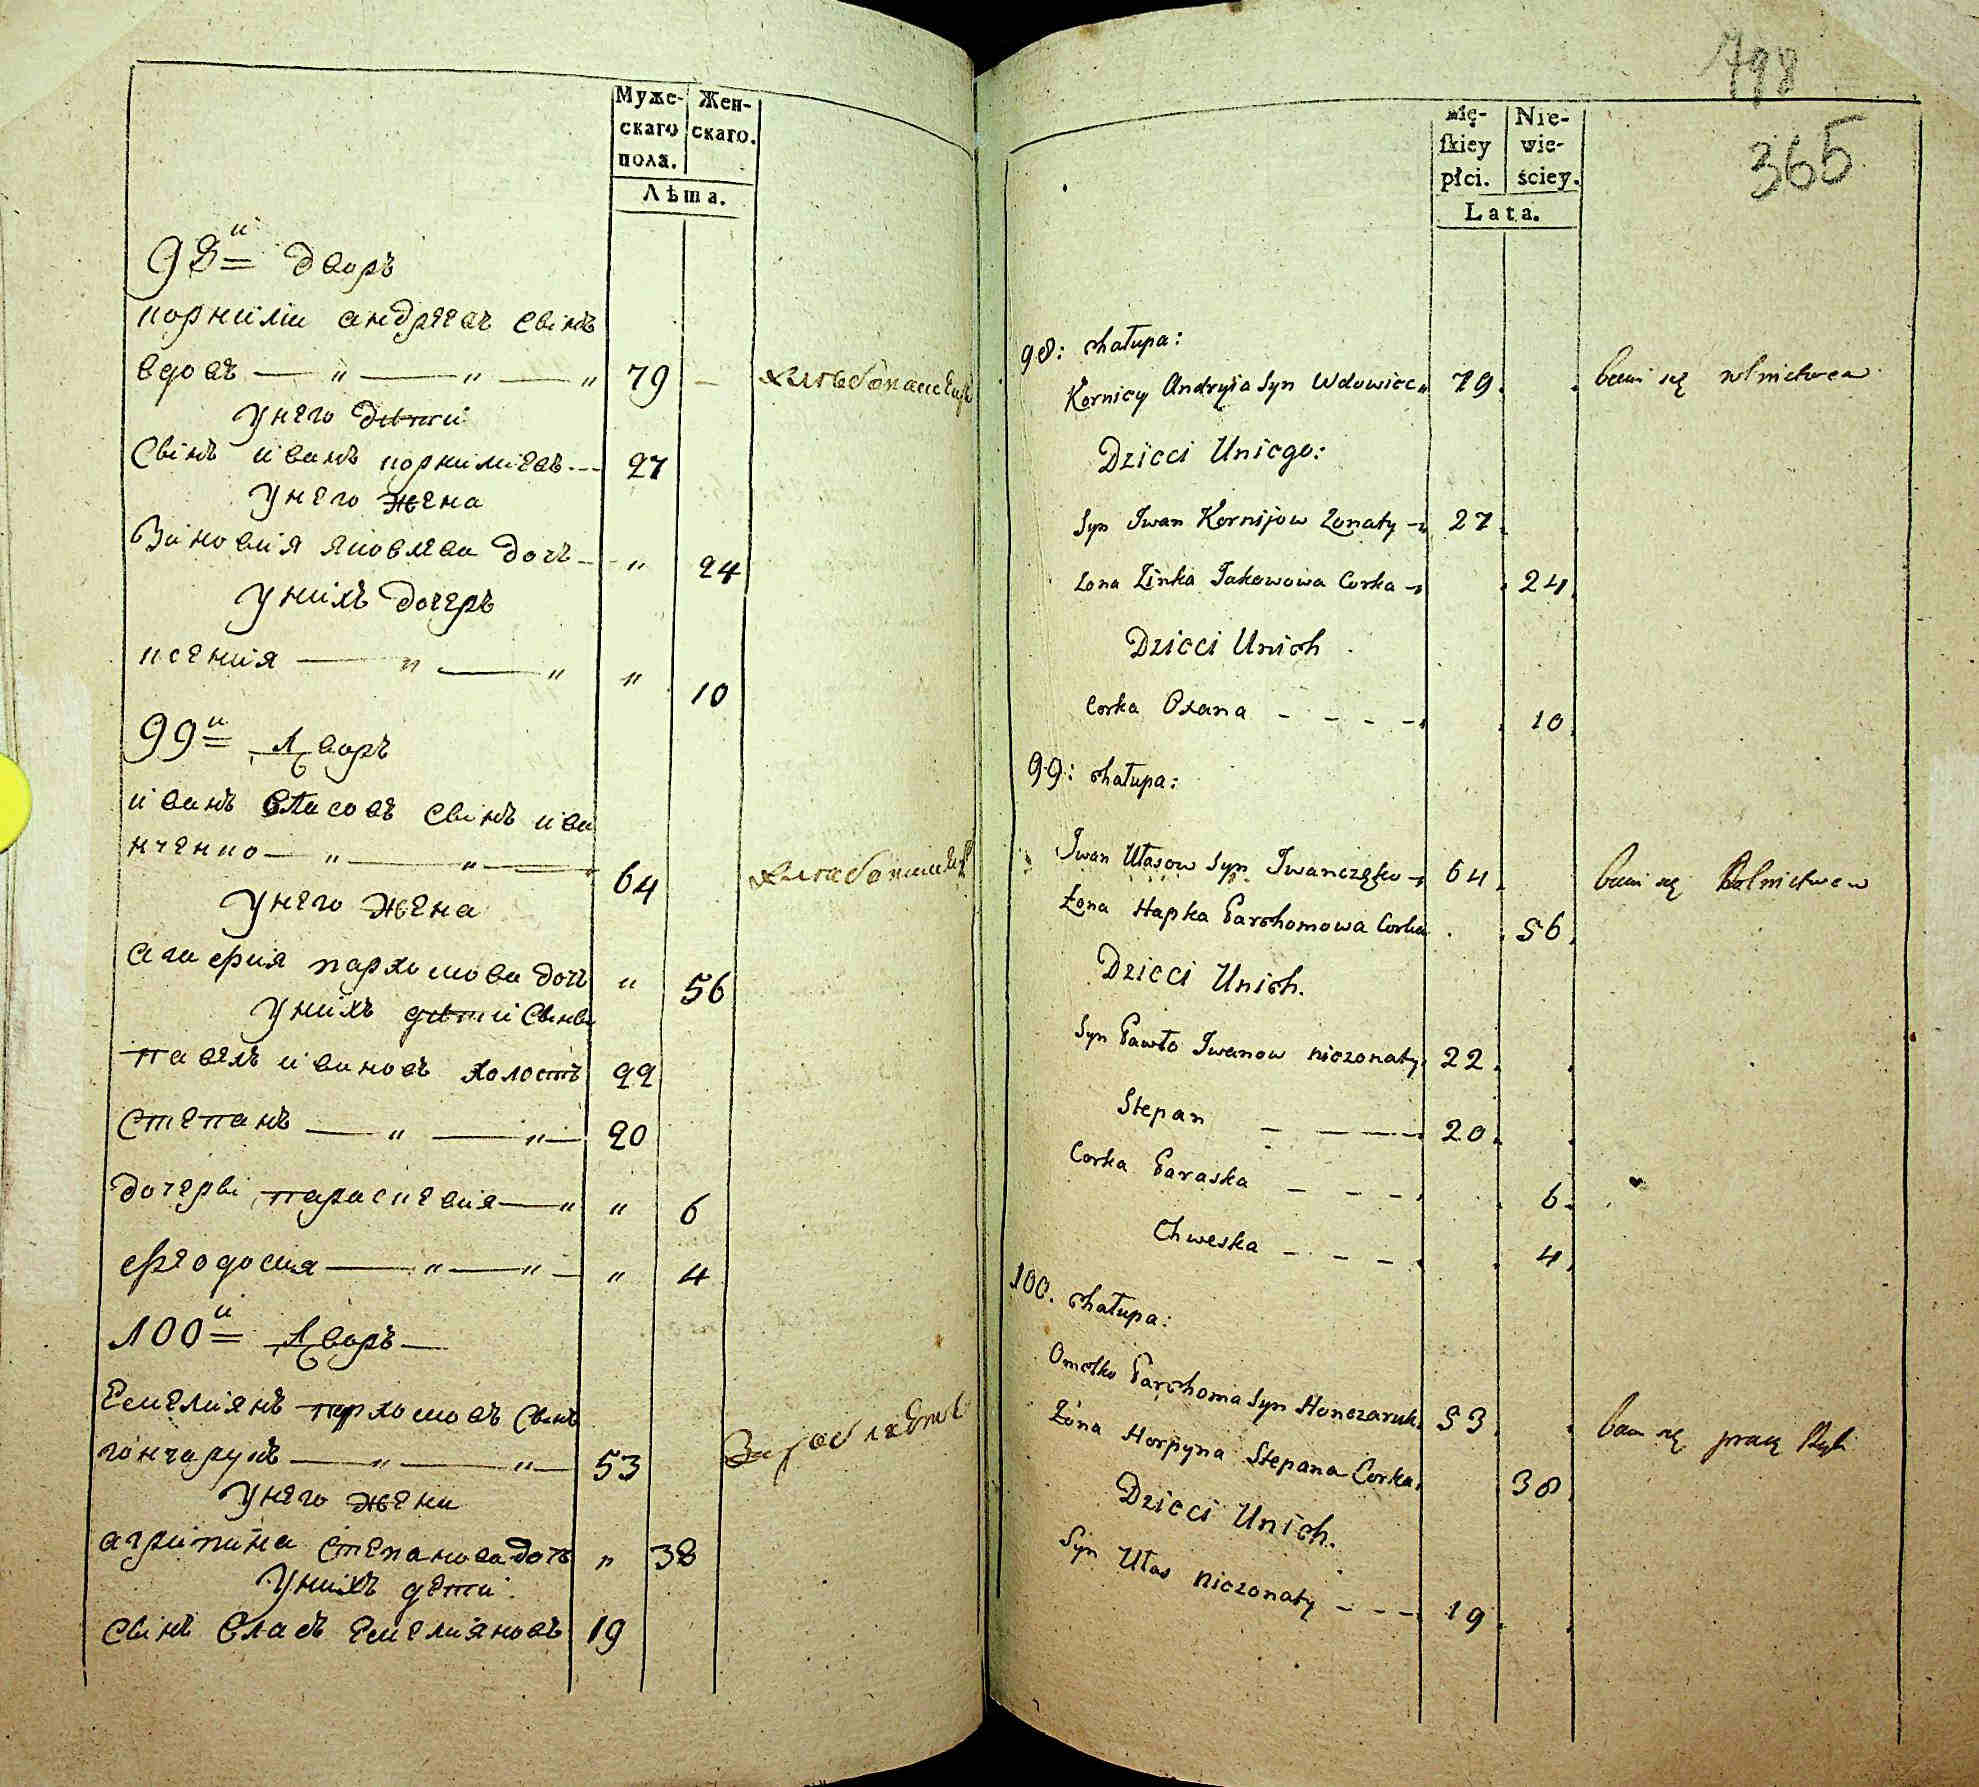 Муже- Жен-
скаго скаго.
пола.
Лѣта.
98й дворъ
корнилiи андрѣевъ свiнъ
вдовъ — " — " — " 79 — хлѣбопашецъ
У него дѣти
Свiнъ иванъ корнилиевъ 27
У него жена
Зiновия яковлева дочь " 24
У нихъ дочерь
ксения — " — " " 10
99й Дворъ
иванъ власовъ свiнъ ива
нченко — " — " — 64 хлебопашецъ
У него жена
агафия пархомова дочь " 56
У нихъ дѣти свiнви
павелъ ивановъ холостъ 22
Степанъ — " — " — 20
дочерві параскевия — " " 6
феодосия — " — " — " 4
100й Дворъ —
Емелиянъ пархомовъ свiнъ
гончарукъ — " — " — 53
У него жена
агрипина степанова дочь " 38
У нихъ дети
свiнъ власъ Емелияновъ 19
798
365
mię- Nie-
ſkiey wie-
płci. ściey.
Lata.
98: chałupa:
Korniey Andryia Syn Wdowiec 79. bawi się rolnictwem
Dzieci Uniego:
Syn Iwan Kornijow Zonaty 27.
Zona Zinka Jakowowa Corka 24.
Dzieci Unich
Corka Oxana - - - - 10.
99: chałupa:
Iwan Własow Syn Iwanczenko 64. bawi się Rolnictwem
Żona Hapka Parchomowa Corka 56.
Dzieci Unich.
Syn Pawło Iwanow niezonaty 22.
Stepan - - - - 20.
Corka Paraska - - - - 6.
Chweska - - - - 4.
100. chałupa:
Omelko Parchoma Syn Honczaruk 53. bawi się pracą
Żona Horpyna Stepana Corka 38.
Dzieci Unich.
Syn Włas niezonaty - - - 19.